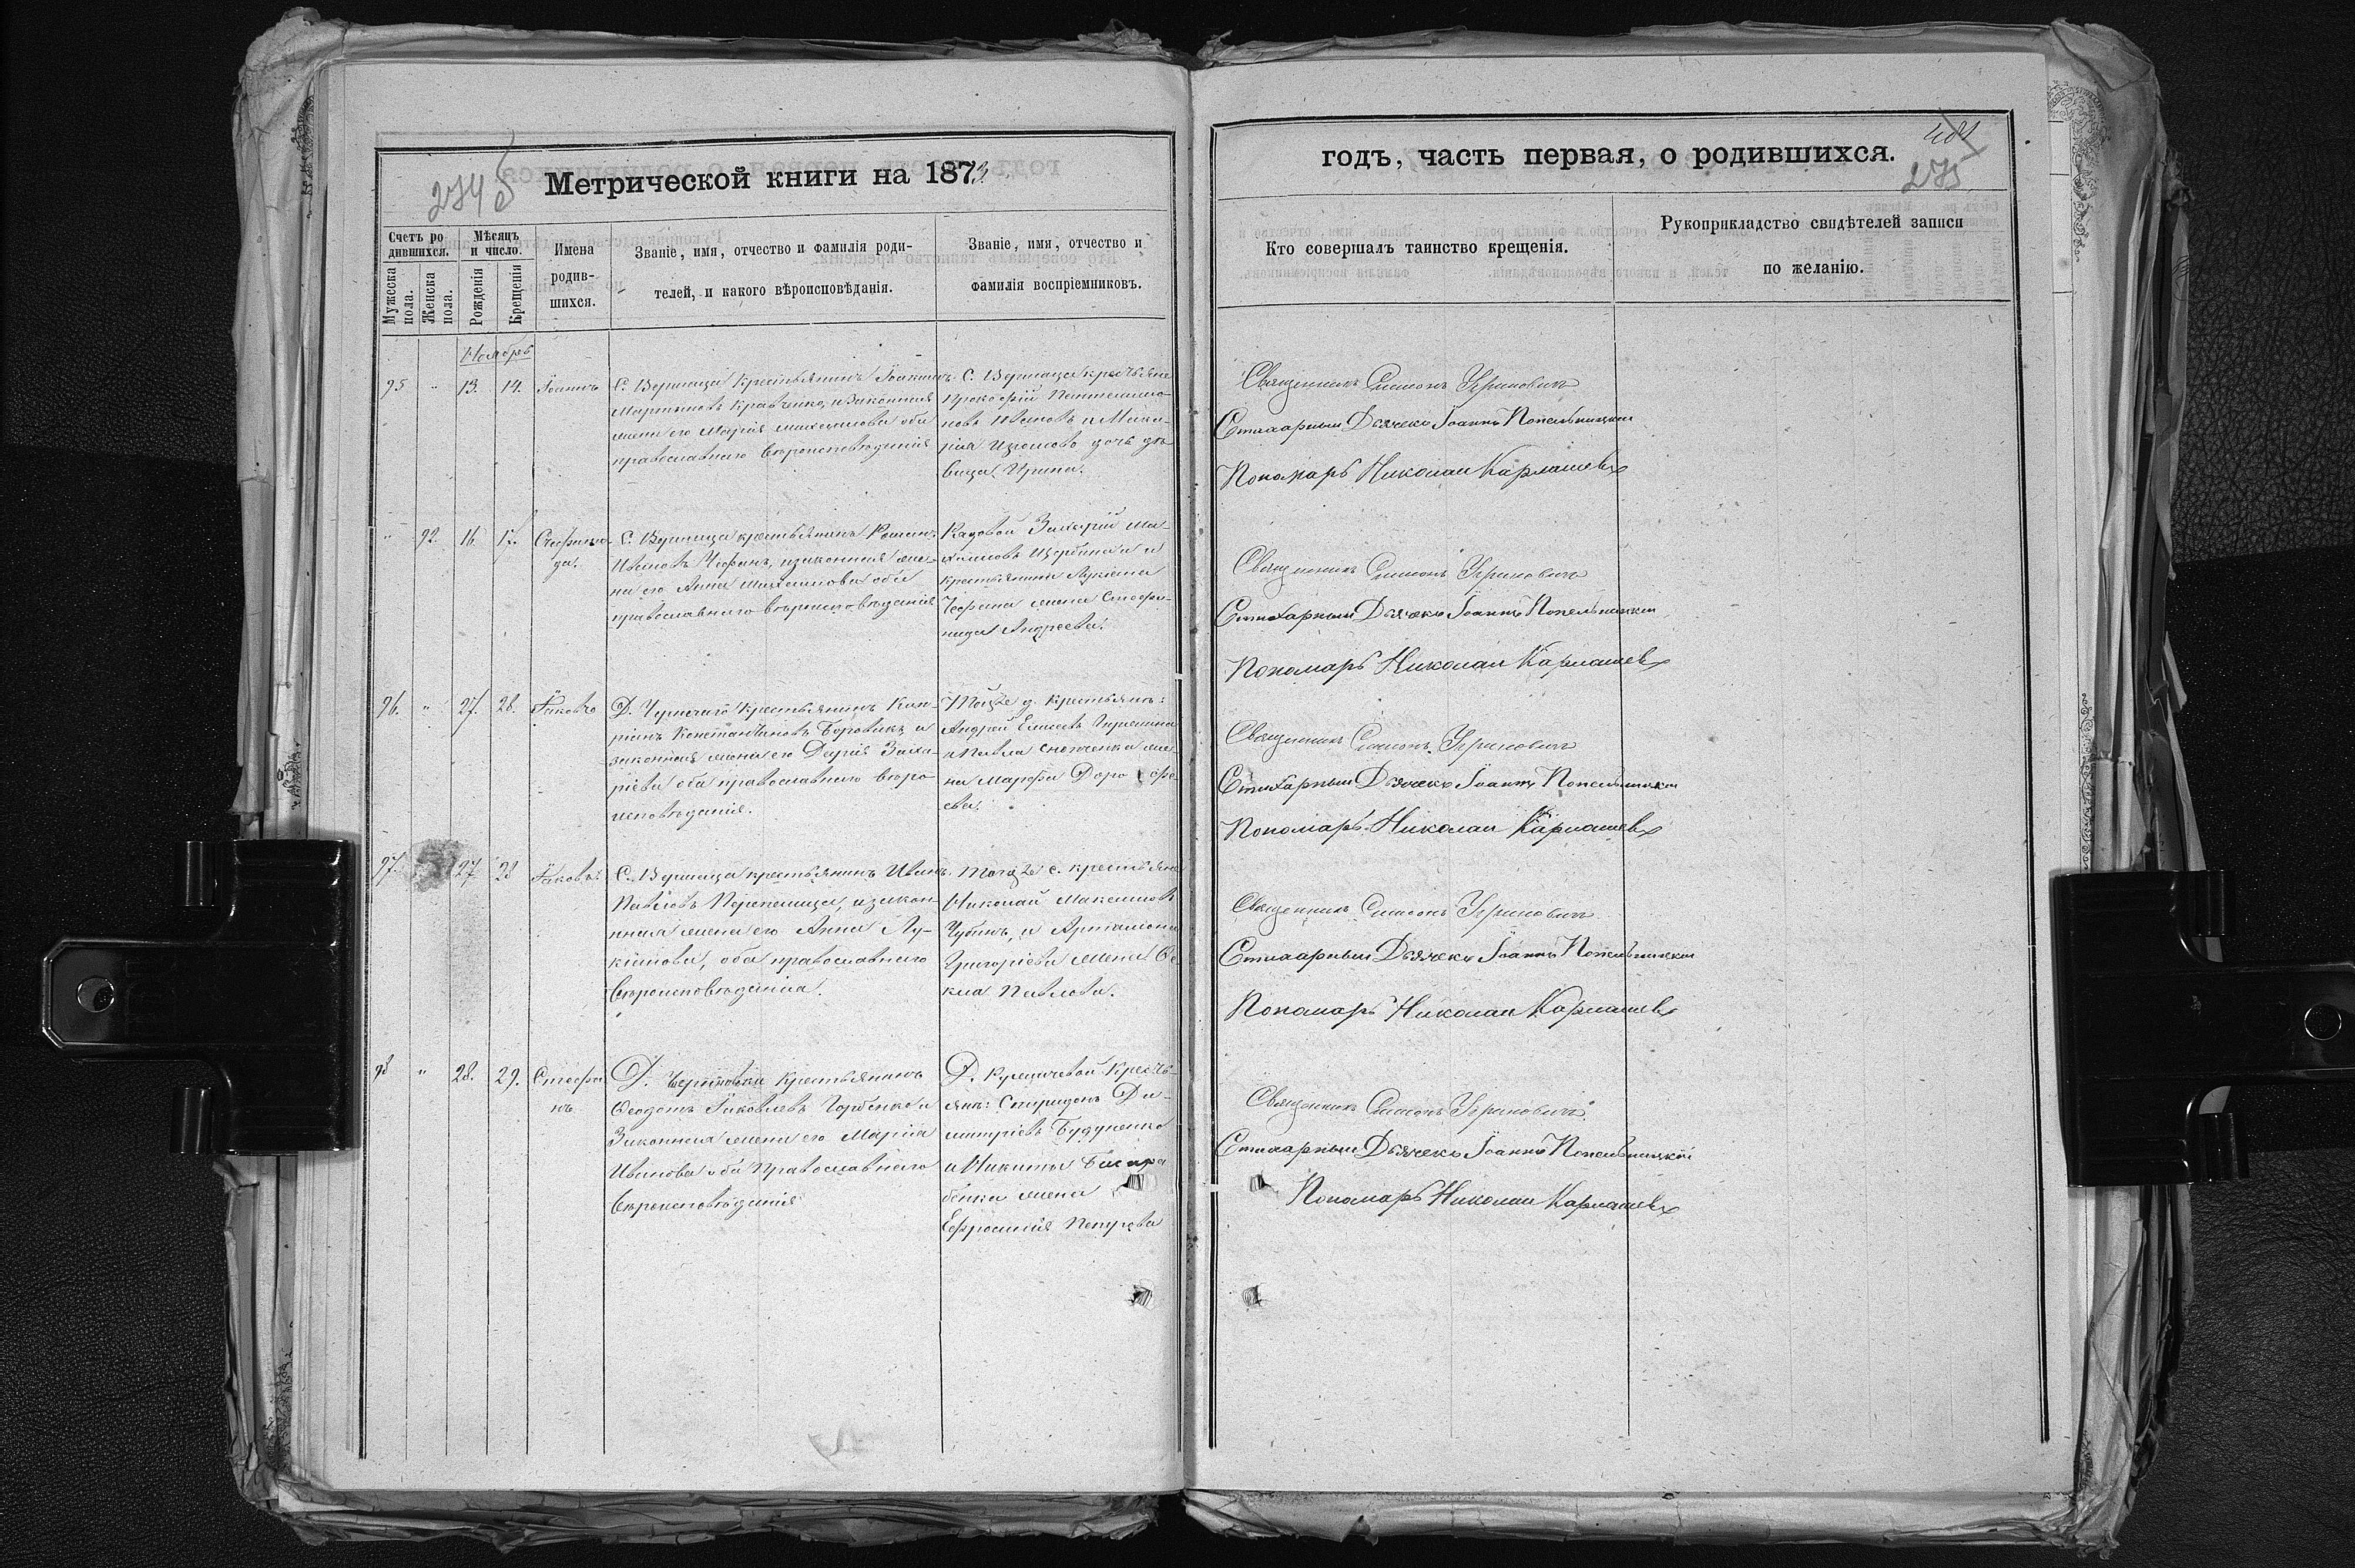 274 об
Метрической книги на 1873
Счетъ ро
дившихся.
Мѣсяцъ
и число.
Мужеска
пола.
Женска
пола.
Рожденія
Крещенія
Имена
родив-
шихся.
Званіе, имя, отчество и фамилія роди-
телей, и какого вѣроисповѣданія.
Званіе, имя, отчество и
фамилія воспріемниковъ.
Ноябрь
95 " 13. 14. Іоаннъ
С. Верміща крестьянинъ Іоакимъ
Мартиновъ Кравченко, и законная
жена его Марія Михаилова оба
православнаго вѣроисповѣданія
С. Верміща крестьяне
Прокофій Пантелимо-
новъ Ивановъ и Мака-
рія Изотова дочь дѣ-
вица Ирина.
" 92. 16. 17. Стефани-
да.
С. Верміща крестьянинъ Романъ
Ивановъ Чефанъ, и законная же-
на его Анна Михаилова оба
православнаго вѣроисповѣданія
Рядовой Захарій Ма-
и
крестьянина Лукіана
Чефана жена Стефа-
нида Андреева.
96. " 27. 28. Іаковъ
Д. крестьянинъ Кип-
ріанъ Константиновъ Боровикъ и
законная жена его Дарія Заха-
ріева оба православнаго вѣро
исповѣданія.
Той же д. крестьян:
Андрей
и Павла жена
Марфа Доро фе
ева.
97. 27 28 Іаковъ.
С. Верміща крестьянинъ Иванъ
Павловъ Перепелица, и закон-
ная жена его Анна Лу-
кіанова, оба православнаго
вѣроисповѣданіа.
Того же с. крестьяне
Николай Максимовъ
Чубинъ, и Артамона
Григоріева жена Ѳе-
кла Павлова.
98 " 28. 29. Стефа
нъ
Д. крестьянинъ
Ѳеодотъ Іаковлевъ Горбенко и
Законная жена его Маріа
Иванова оба Православнаго
Вѣроисповѣданія
Д. Крестъ-
янъ: Спиридонъ Ди-
митріевъ
и Никиты
бенка жена
Ефросинія
годъ, часть первая, о родившихся.
275
Кто совершалъ таинство крещенія.
Рукоприкладство свидѣтелей записи
по желанію.
Священникъ Симеонъ Угриновичъ
Стихарный Дьячекъ Іоаннъ Попельницкій
Пономарь Николай Кармашевъ
Священникъ Симеонъ Угриновичъ
Стихарный Дьячекъ Іоаннъ Попельницкій
Пономарь Николай Кармашевъ
Священникъ Симеонъ Угриновичъ
Стихарный Дьячекъ Іоаннъ Попельницкій
Пономарь Николай Кармашевъ
Священникъ Симеонъ Угриновичъ
Стихарный Дьячекъ Іоаннъ Попельницкій
Пономарь Николай Кармашевъ
Священникъ Симеонъ Угриновичъ
Стихарный Дьячекъ Іоаннъ Попельницкій
Пономарь Николай Кармашевъ